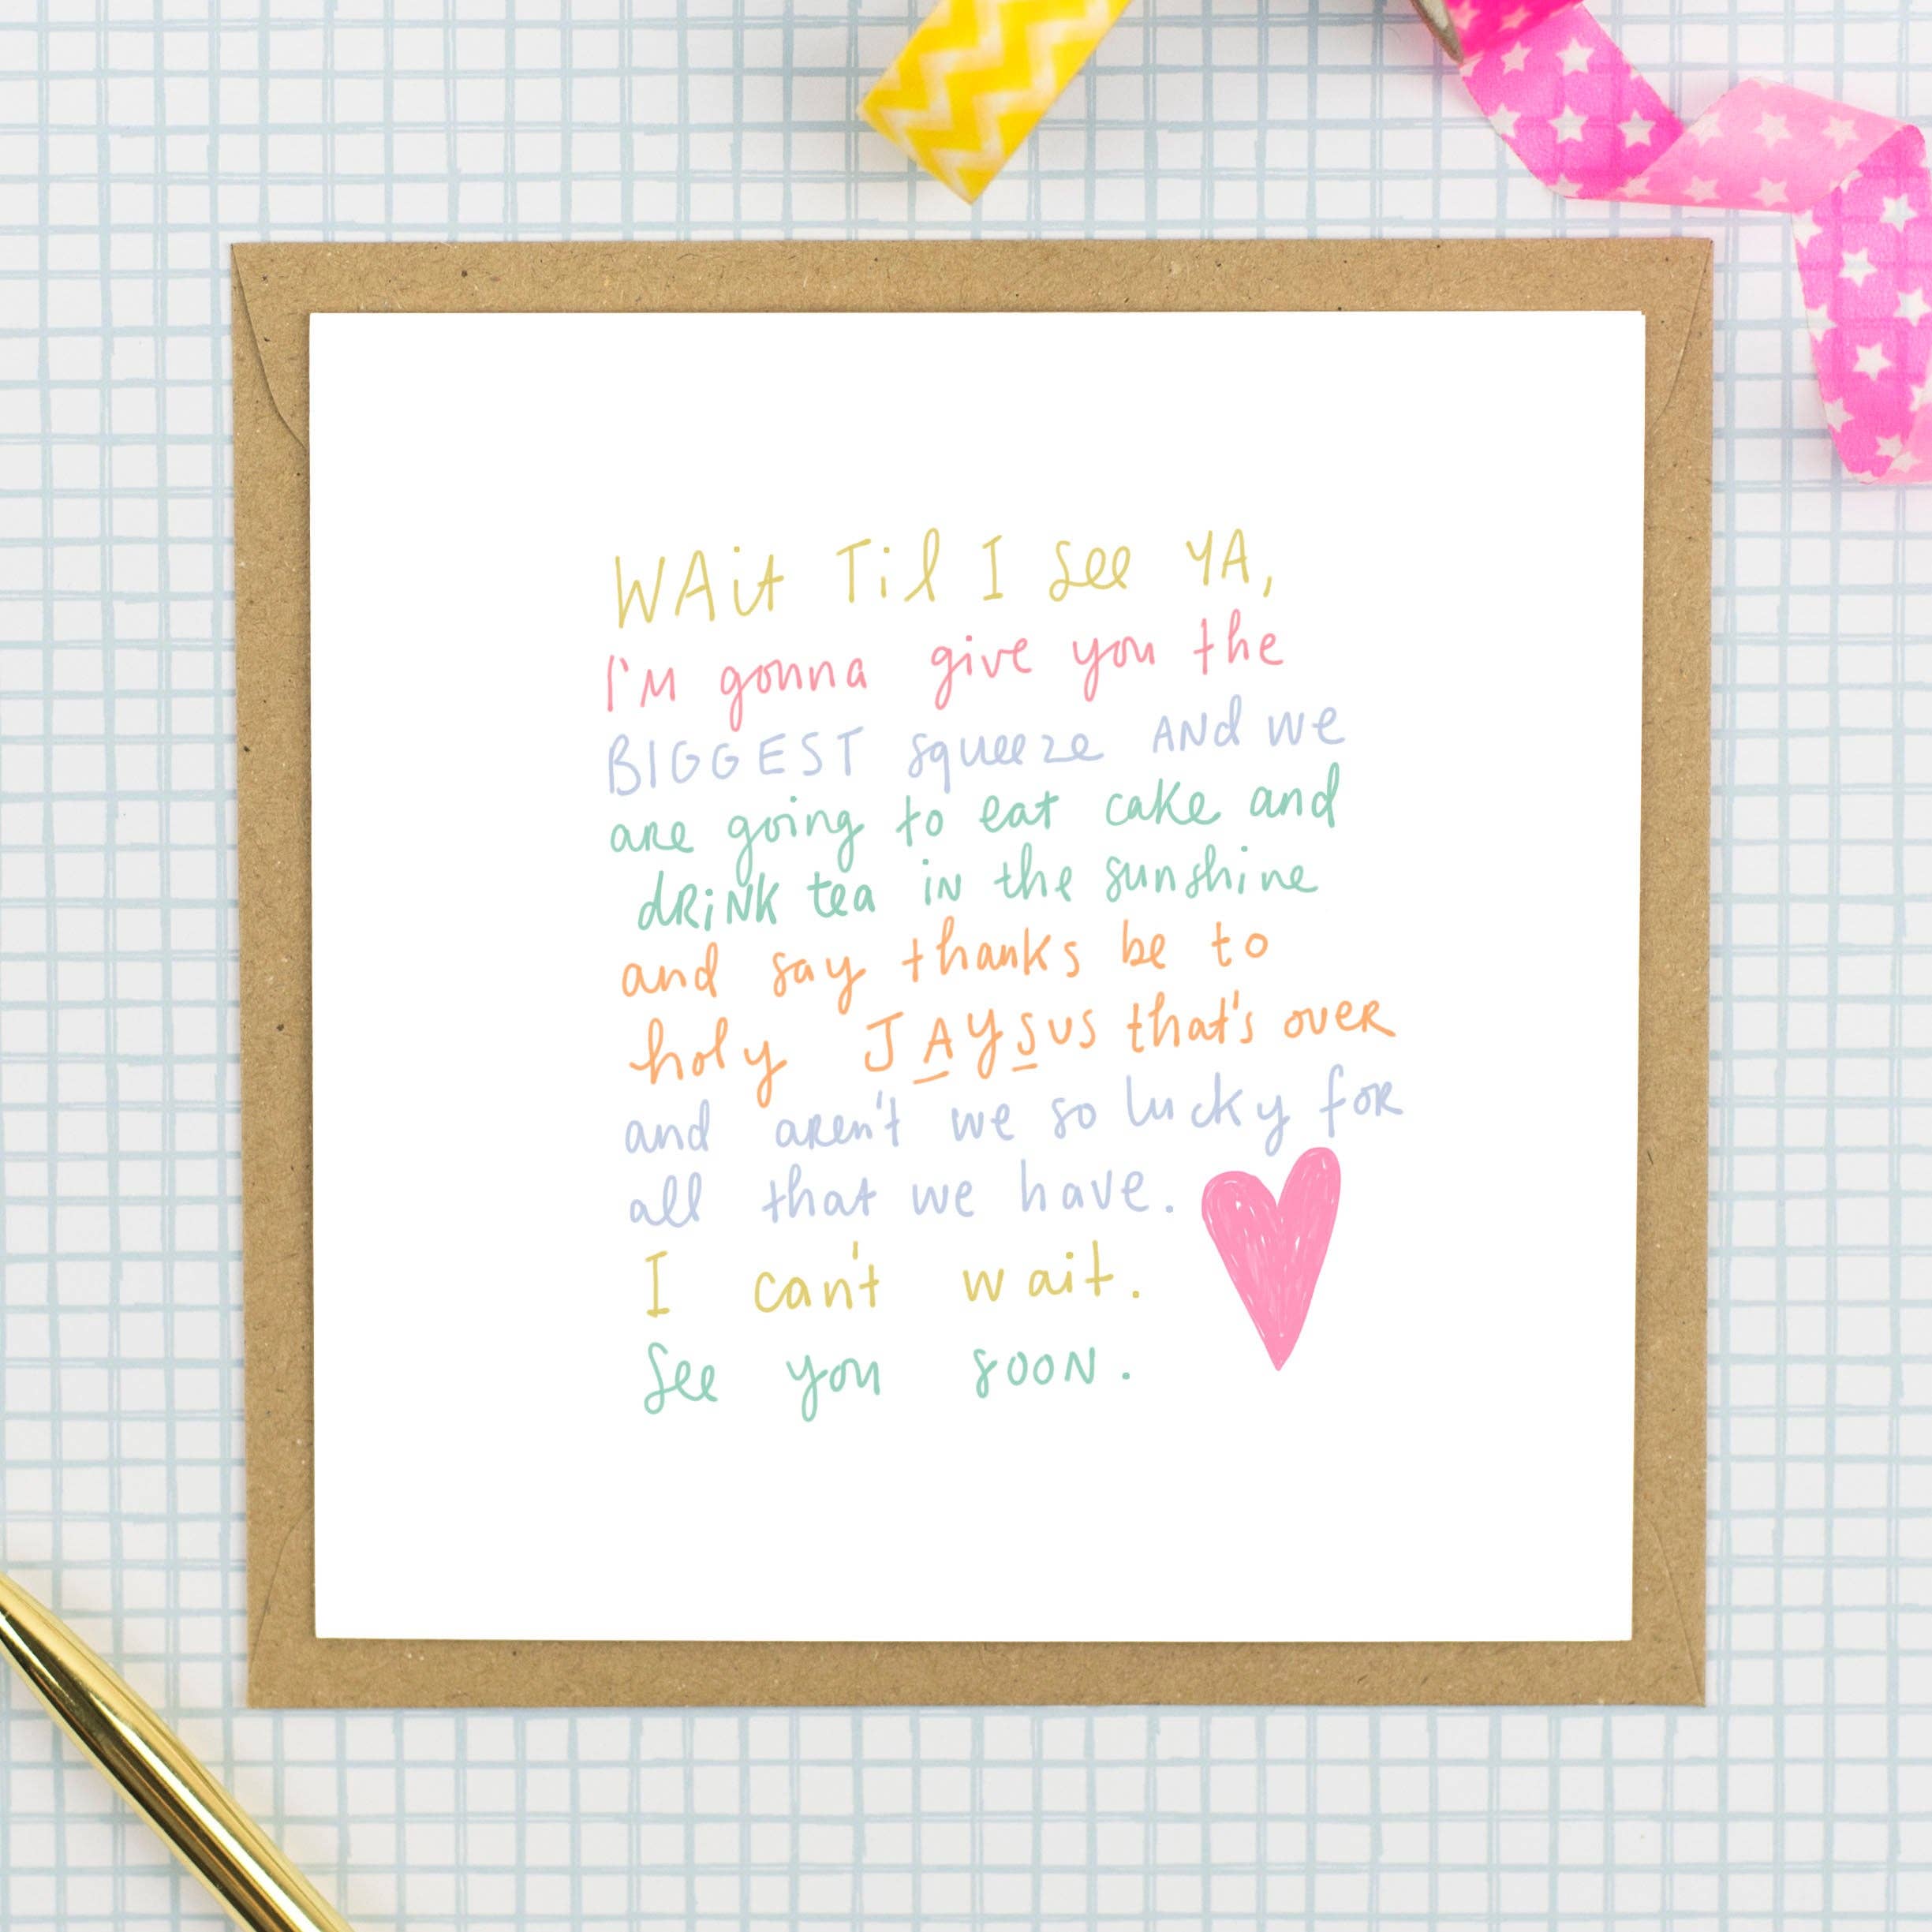 WAit Til I see YA,
I'M gonna give you the
BIGGEST squeeze ANd we
are going to eat cake and
dRiNK tea iN the sunshine
and say thanks be to
holy JAYSUS that's oveR
and aren't we so lucky foR
all that we have.
I can't wait.
See you sooN.